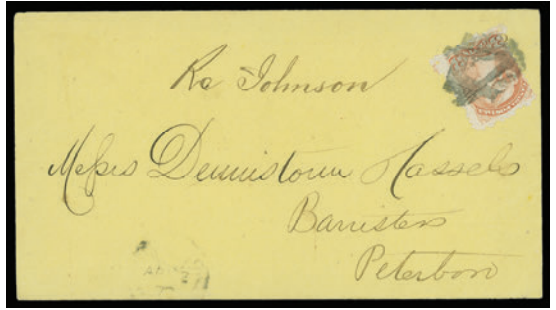 Re Johnson
Messrs Dennistoun Hassels
Barristers
Peterboro